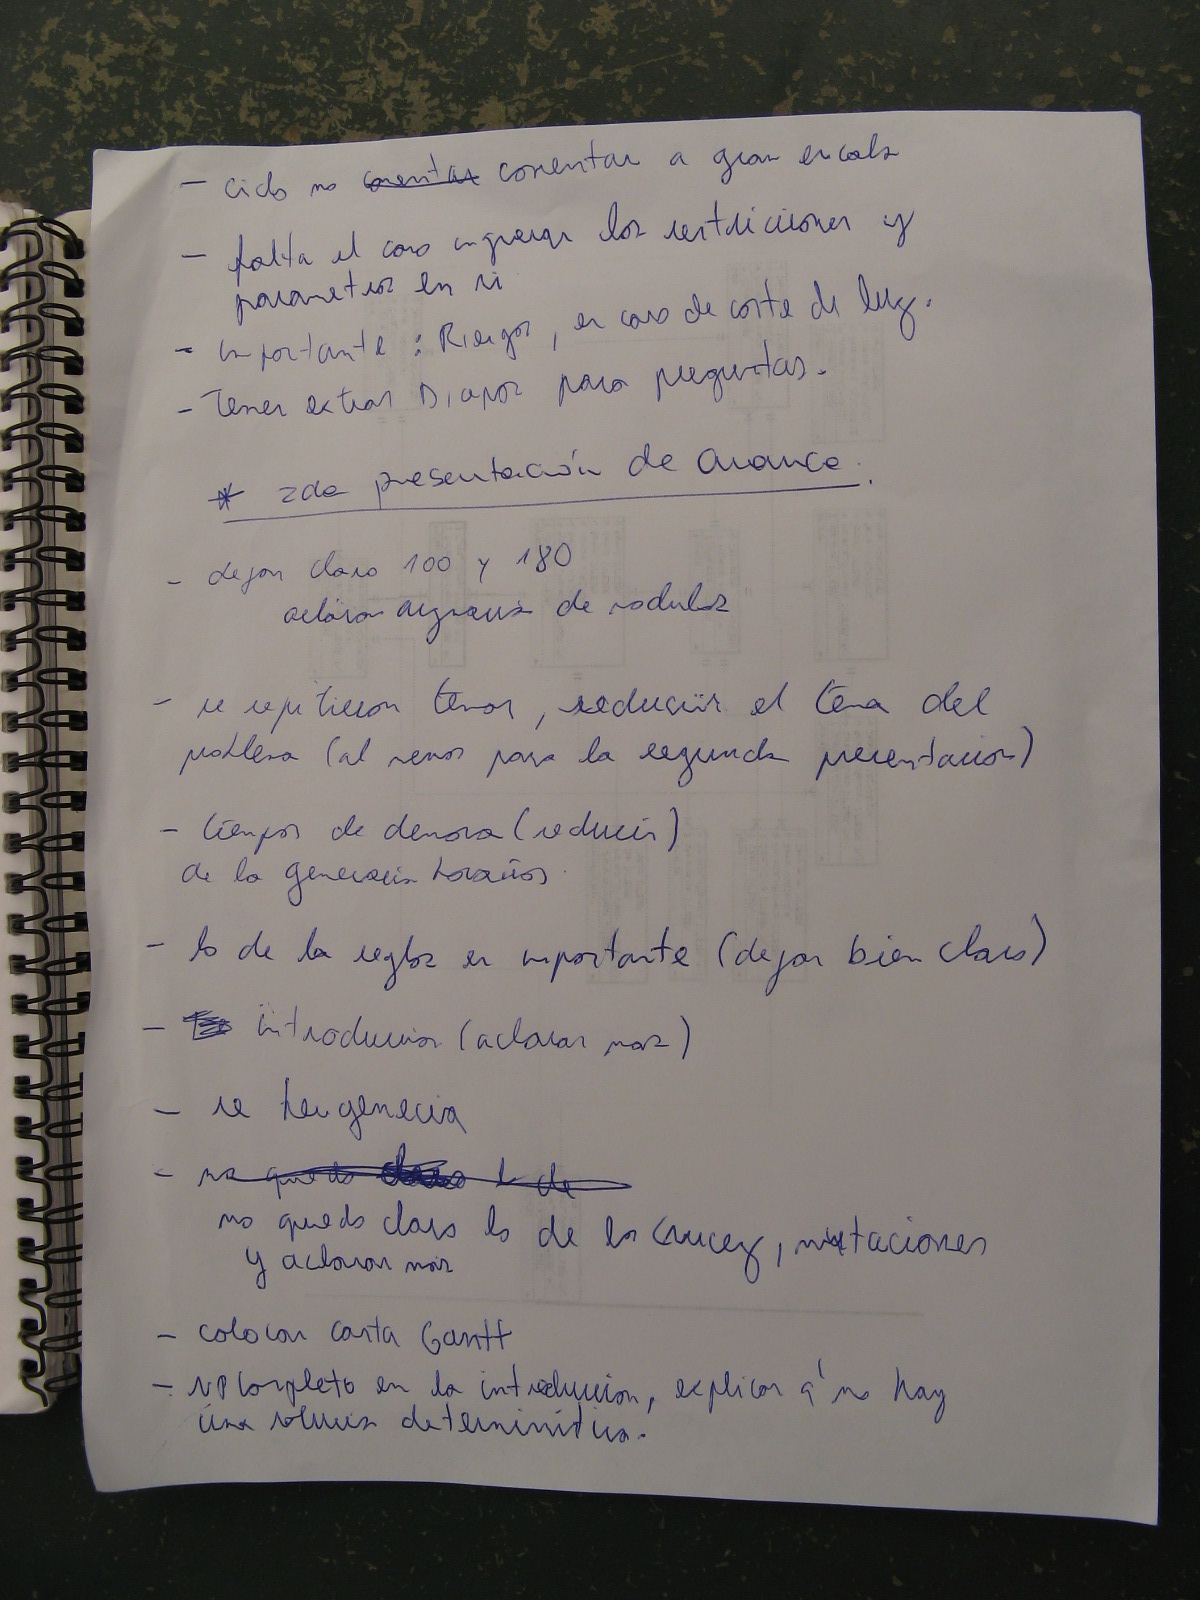 - ciclo no comentar comentar a gran escala
- falta el caso ingresar las restricciones y
parametros en si
- importante : Riesgos, en caso de corte de luz.
- Tener extras Diapos para preguntas.
* 2da presentación de avance.
- dejar claro 100 y 180
aclarar de modulos
- se repitieron temas, reducir el tema del
problema (al menos para la segunda presentacion)
- tiempos de demora (reducir)
de la generacion horarios.
- lo de la reglas es importante (dejar bien claro)
- introduccion (aclarar mas)
- se
- no quedo claro lo de
no quedo claro lo de los cruces, mutaciones
y aclarar mas
- colocar carta Gantt
- NP Completo en la introduccion, explicar q' no hay
una solucion deterministica.